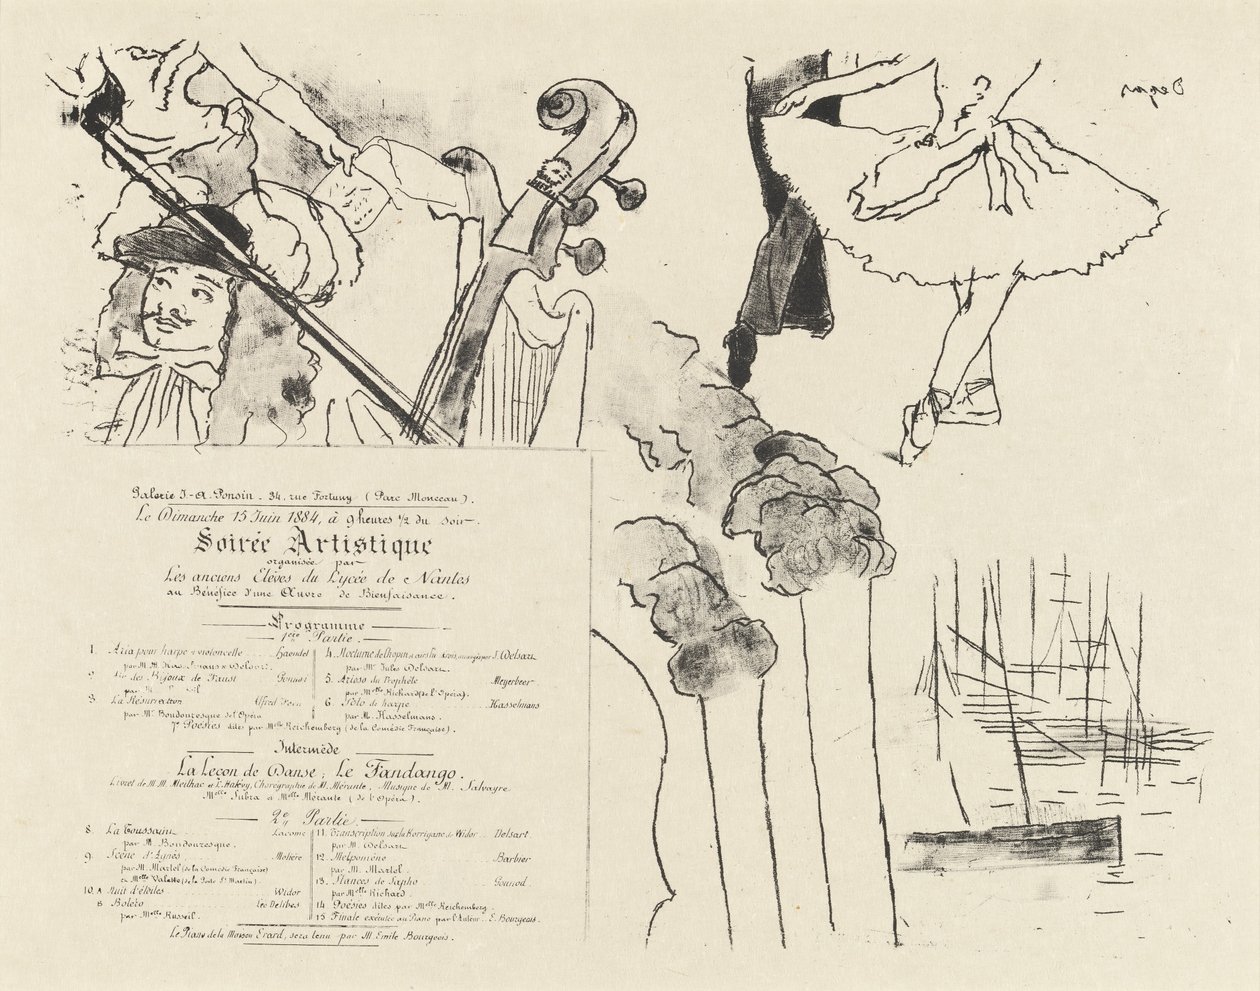 Degas
Galerie J.-A. Ponsin. 34, rue Fortuny (Parc Monceau).
Le Dimanche 15 Juin 1884, à 9 heures ½ du soir.
Soirée Artistique
organisée par
Les anciens Elèves du Lycée de Nantes
au Bénéfice d'une Œuvre de Bienfaisance.
Programme
1ère Partie.
1. Aria pour harpe & violoncelle Haendel
par M.M. & Delsart.
2. des Bijoux de Faust Gounod
par
3. La Résurrection Alfred
par Mr Boudouresque de l'Opéra
4. Nocturne de Chopin arrangés par J. Delsart
par Mr Jules Delsart.
5. Arioso du Prophète Meyerbeer.
par Melle Richard (de l'Opéra).
6. Solo de harpe Hasselmans
par M. Hasselmans.
7e Poésies dites par Melle Reichemberg (de la Comédie Française).
Intermède
La Leçon de Danse; Le Fandango.
Livret de M.M. Meilhac et L. Halévy, Chorégraphie de M. Mérante. Musique de M. Salvayre
Melle Subra & Melle Mérante (de l'Opéra).
2e Partie
8. La Toussaint Lacome
par M. Boudouresque.
9. Scène d'Agnès Molière
par M. Martel (de la Comédie Française)
& Melle Valette (de la Porte St Martin).
10. A Nuit d'étoiles Widor
B Boléro Léo Delibes
par Melle Russeil.
11. Transcription sur la Korrigane de Widor Delsart.
par M. Delsart
12. Melpomène Barbier
par M. Martel.
13. Stances de Sapho Gounod.
par Melle Richard
14 Poésies dites par Melle Reichemberg.
15 Finale exécutée au Piano par l'Auteur. E. Bourgeois.
Le Piano de la Maison Erard, sera tenu par M. Emile Bourgeois.